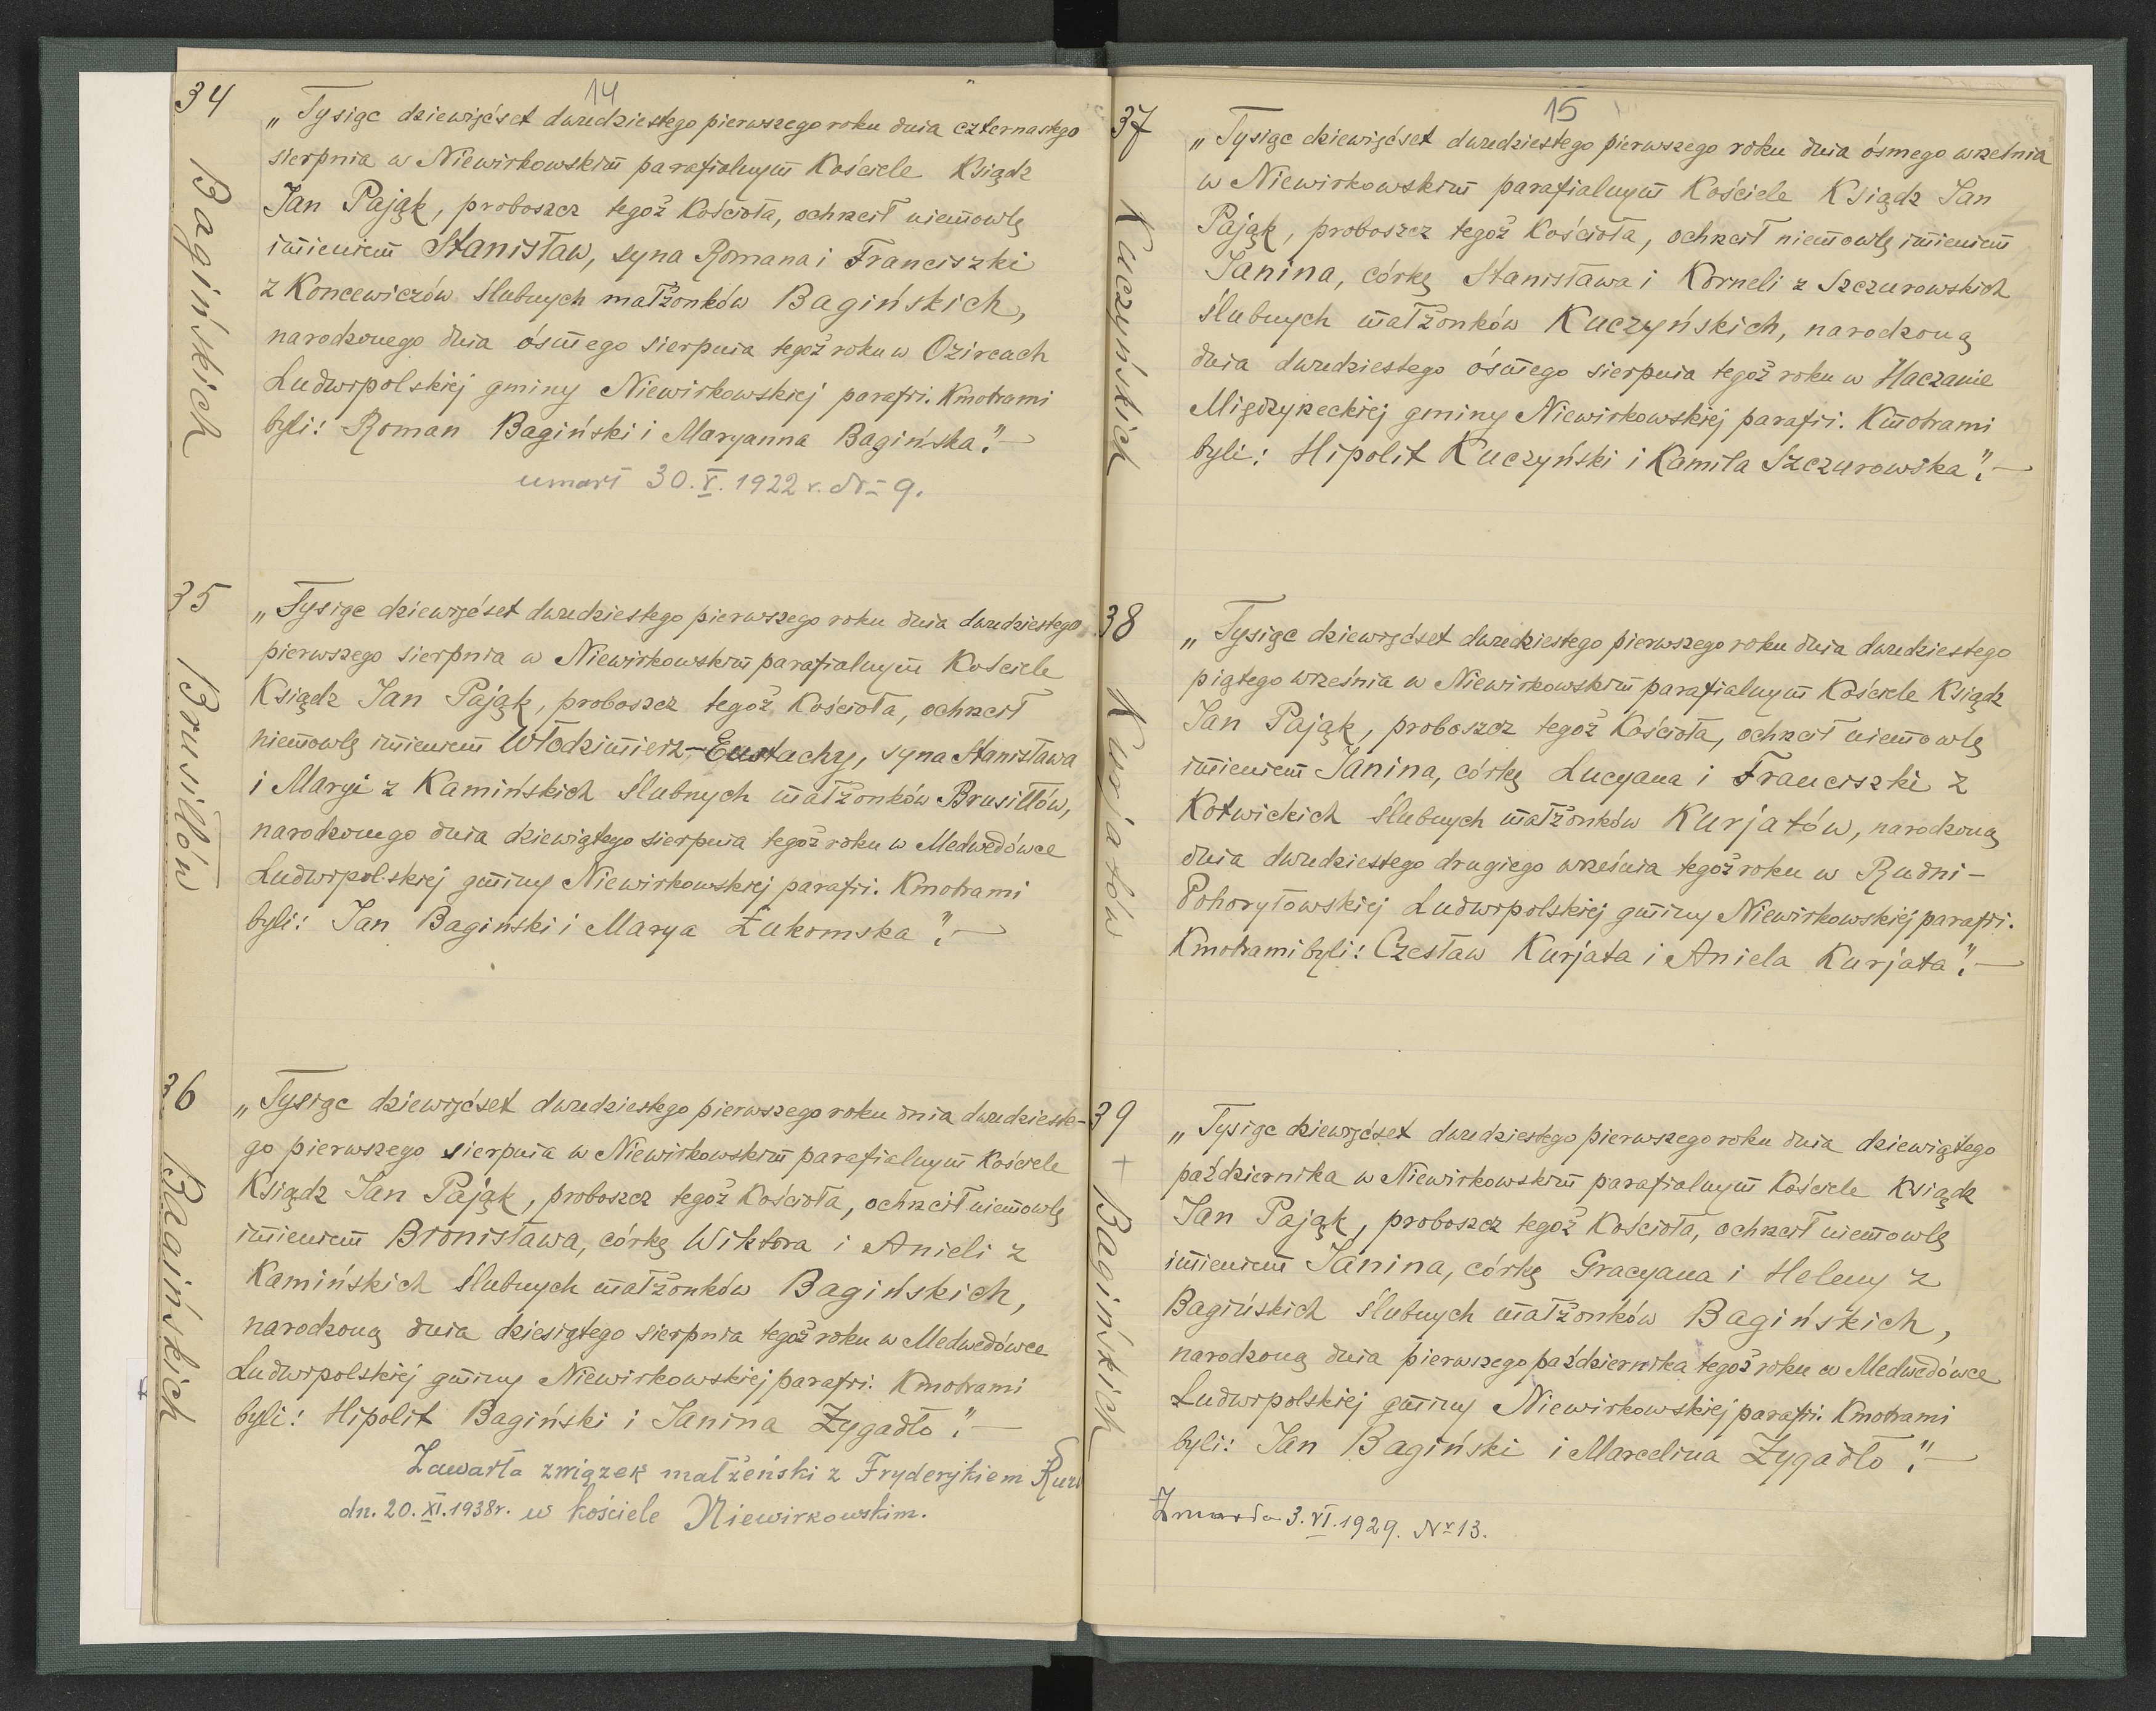 14
34
Bagińskich
„Tysiąc dziewięćset dwudziestego pierwszego roku dnia czternastego
sierpnia w Niewirkowskim parafialnym Kościele Ksiądz
Jan Pająk, proboszcz tegoż Kościoła, ochrzcił niemowlę
imieniem Stanisław, syna Romana i Franciszki
z Koncewiczów ślubnych małżonków Bagińskich,
narodzonego dnia ósmego sierpnia tegoż roku w Ozircach
Ludwipolskiej gminy Niewirkowskiej parafii. Kmotrami
byli: Roman Bagiński i Maryanna Bagińska”.—
umarł 30.V.1922 r. № 9.
35
Brusiłłów
„Tysiąc dziewięćset dwudziestego pierwszego roku dnia dwudziestego
pierwszego sierpnia w Niewirkowskim parafialnym Kościele
Ksiądz Jan Pająk, proboszcz tegoż Kościoła, ochrzcił
niemowlę imieniem Włodzimierz-Eustachy, syna Stanisława
i Maryi z Kamińskich ślubnych małżonków Brusiłłów,
narodzonego dnia dziewiątego sierpnia tegoż roku w Medwedówce
Ludwipolskiej gminy Niewirkowskiej parafii. Kmotrami
byli: Jan Bagiński i Marya Łukomska”.—
36
Bagińskich
„Tysiąc dziewięćset dwudziestego pierwszego roku dnia dwudzieste-
go pierwszego sierpnia w Niewirkowskim parafialnym Kościele
Ksiądz Jan Pająk, proboszcz tegoż Kościoła, ochrzcił niemowlę
imieniem Bronisława, córkę Wiktora i Anieli z
Kamińskich ślubnych małżonków Bagińskich,
narodzoną dnia dziesiątego sierpnia tegoż roku w Medwedówce
Ludwipolskiej gminy Niewirkowskiej parafii. Kmotrami
byli: Hipolit Bagiński i Janina Zygadło”.—
Zawarła związek małżeński z Fryderykiem
dn. 20.XI.1938r. w kościele Niewirkowskim.
15
37
Kuczyńskich
„Tysiąc dziewięćset dwudziestego pierwszego roku dnia ósmego września
w Niewirkowskim parafialnym Kościele Ksiądz Jan
Pająk, proboszcz tegoż Kościoła, ochrzcił niemowlę imieniem
Janina, córkę Stanisława i Korneli z Szczurowskich
ślubnych małżonków Kuczyńskich, narodzoną
dnia dwudziestego ósmego sierpnia tegoż roku w Haczanie
Międzyrzeckiej gminy Niewirkowskiej parafii. Kmotrami
byli: Hipolit Kuczyński i Kamila Szczurowska”.—
38
Kurjatów
„Tysiąc dziewięćset dwudziestego pierwszego roku dnia dwudziestego
piątego września w Niewirkowskim parafialnym Kościele Ksiądz
Jan Pająk, proboszcz tegoż Kościoła, ochrzcił niemowlę
imieniem Janina, córkę Lucyana i Franciszki z
Kotwickich ślubnych małżonków Kurjatów, narodzoną
dnia dwudziestego drugiego września tegoż roku w Rudni-
Pohoryłowskiej Ludwipolskiej gminy Niewirkowskiej parafii.
Kmotrami byli: Czesław Kurjata i Aniela Kurjata”.—
39
+ Bagińskich
„Tysiąc dziewięćset dwudziestego pierwszego roku dnia dziewiątego
października w Niewirkowskim parafialnym Kościele Ksiądz
Jan Pająk, proboszcz tegoż Kościoła, ochrzcił niemowlę
imieniem Janina, córkę Gracyana i Heleny z
Bagińskich ślubnych małżonków Bagińskich,
narodzoną dnia pierwszego października tegoż roku w Medwedówce
Ludwipolskiej gminy Niewirkowskiej parafii. Kmotrami
byli: Jan Bagiński i Marcelina Zygadło”.—
Zmarła 3.VI.1929. Nr 13.